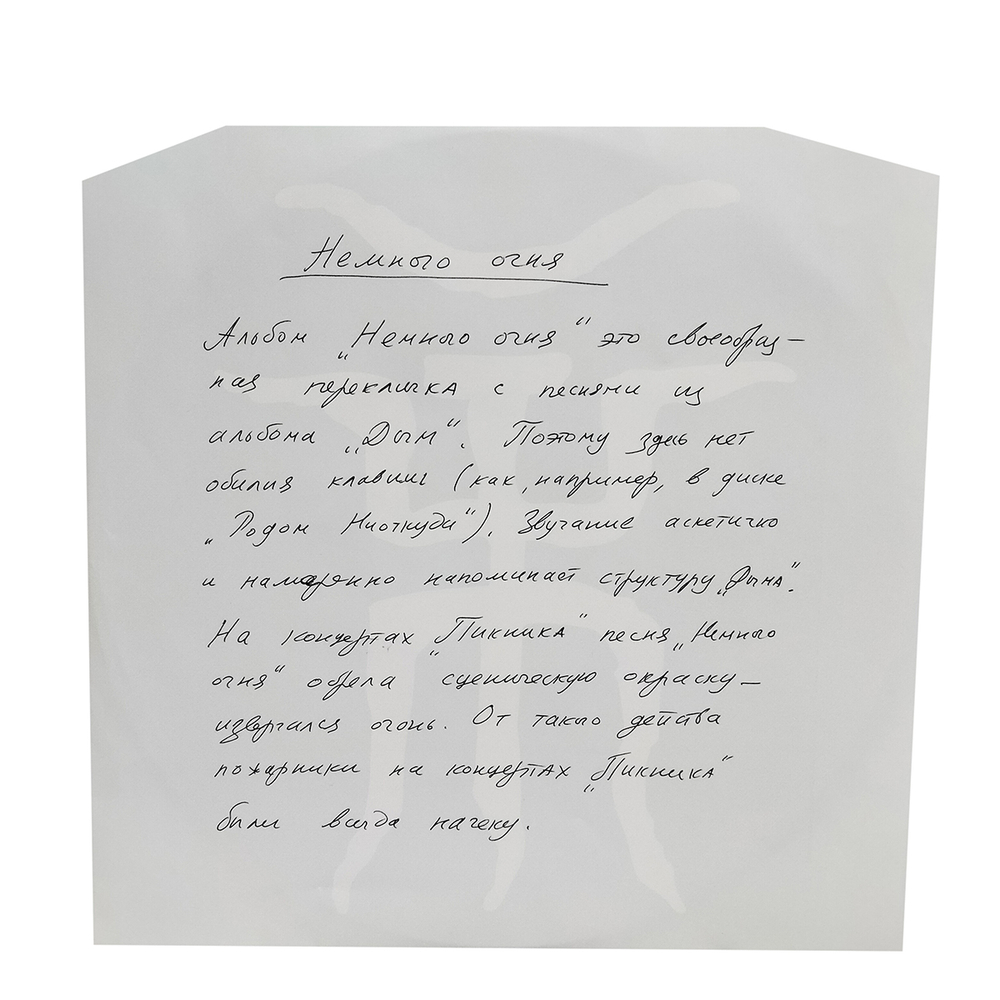 Немного огня
Альбом „Немного огня“ это своеобраз-
ная перекличка с песнями из
альбома „Дым“. Поэтому здесь нет
обилия клавиш (как, например, в диске
„Родом Ниоткуда“). Звучание аскетично
и намеренно напоминает структуру „Дыма“.
На концертах „Пикника“ песня „Немного
огня“ обрела сценическую окраску—
извергался огонь. От такого действа
пожарники на концертах „Пикника“
были всегда начеку.